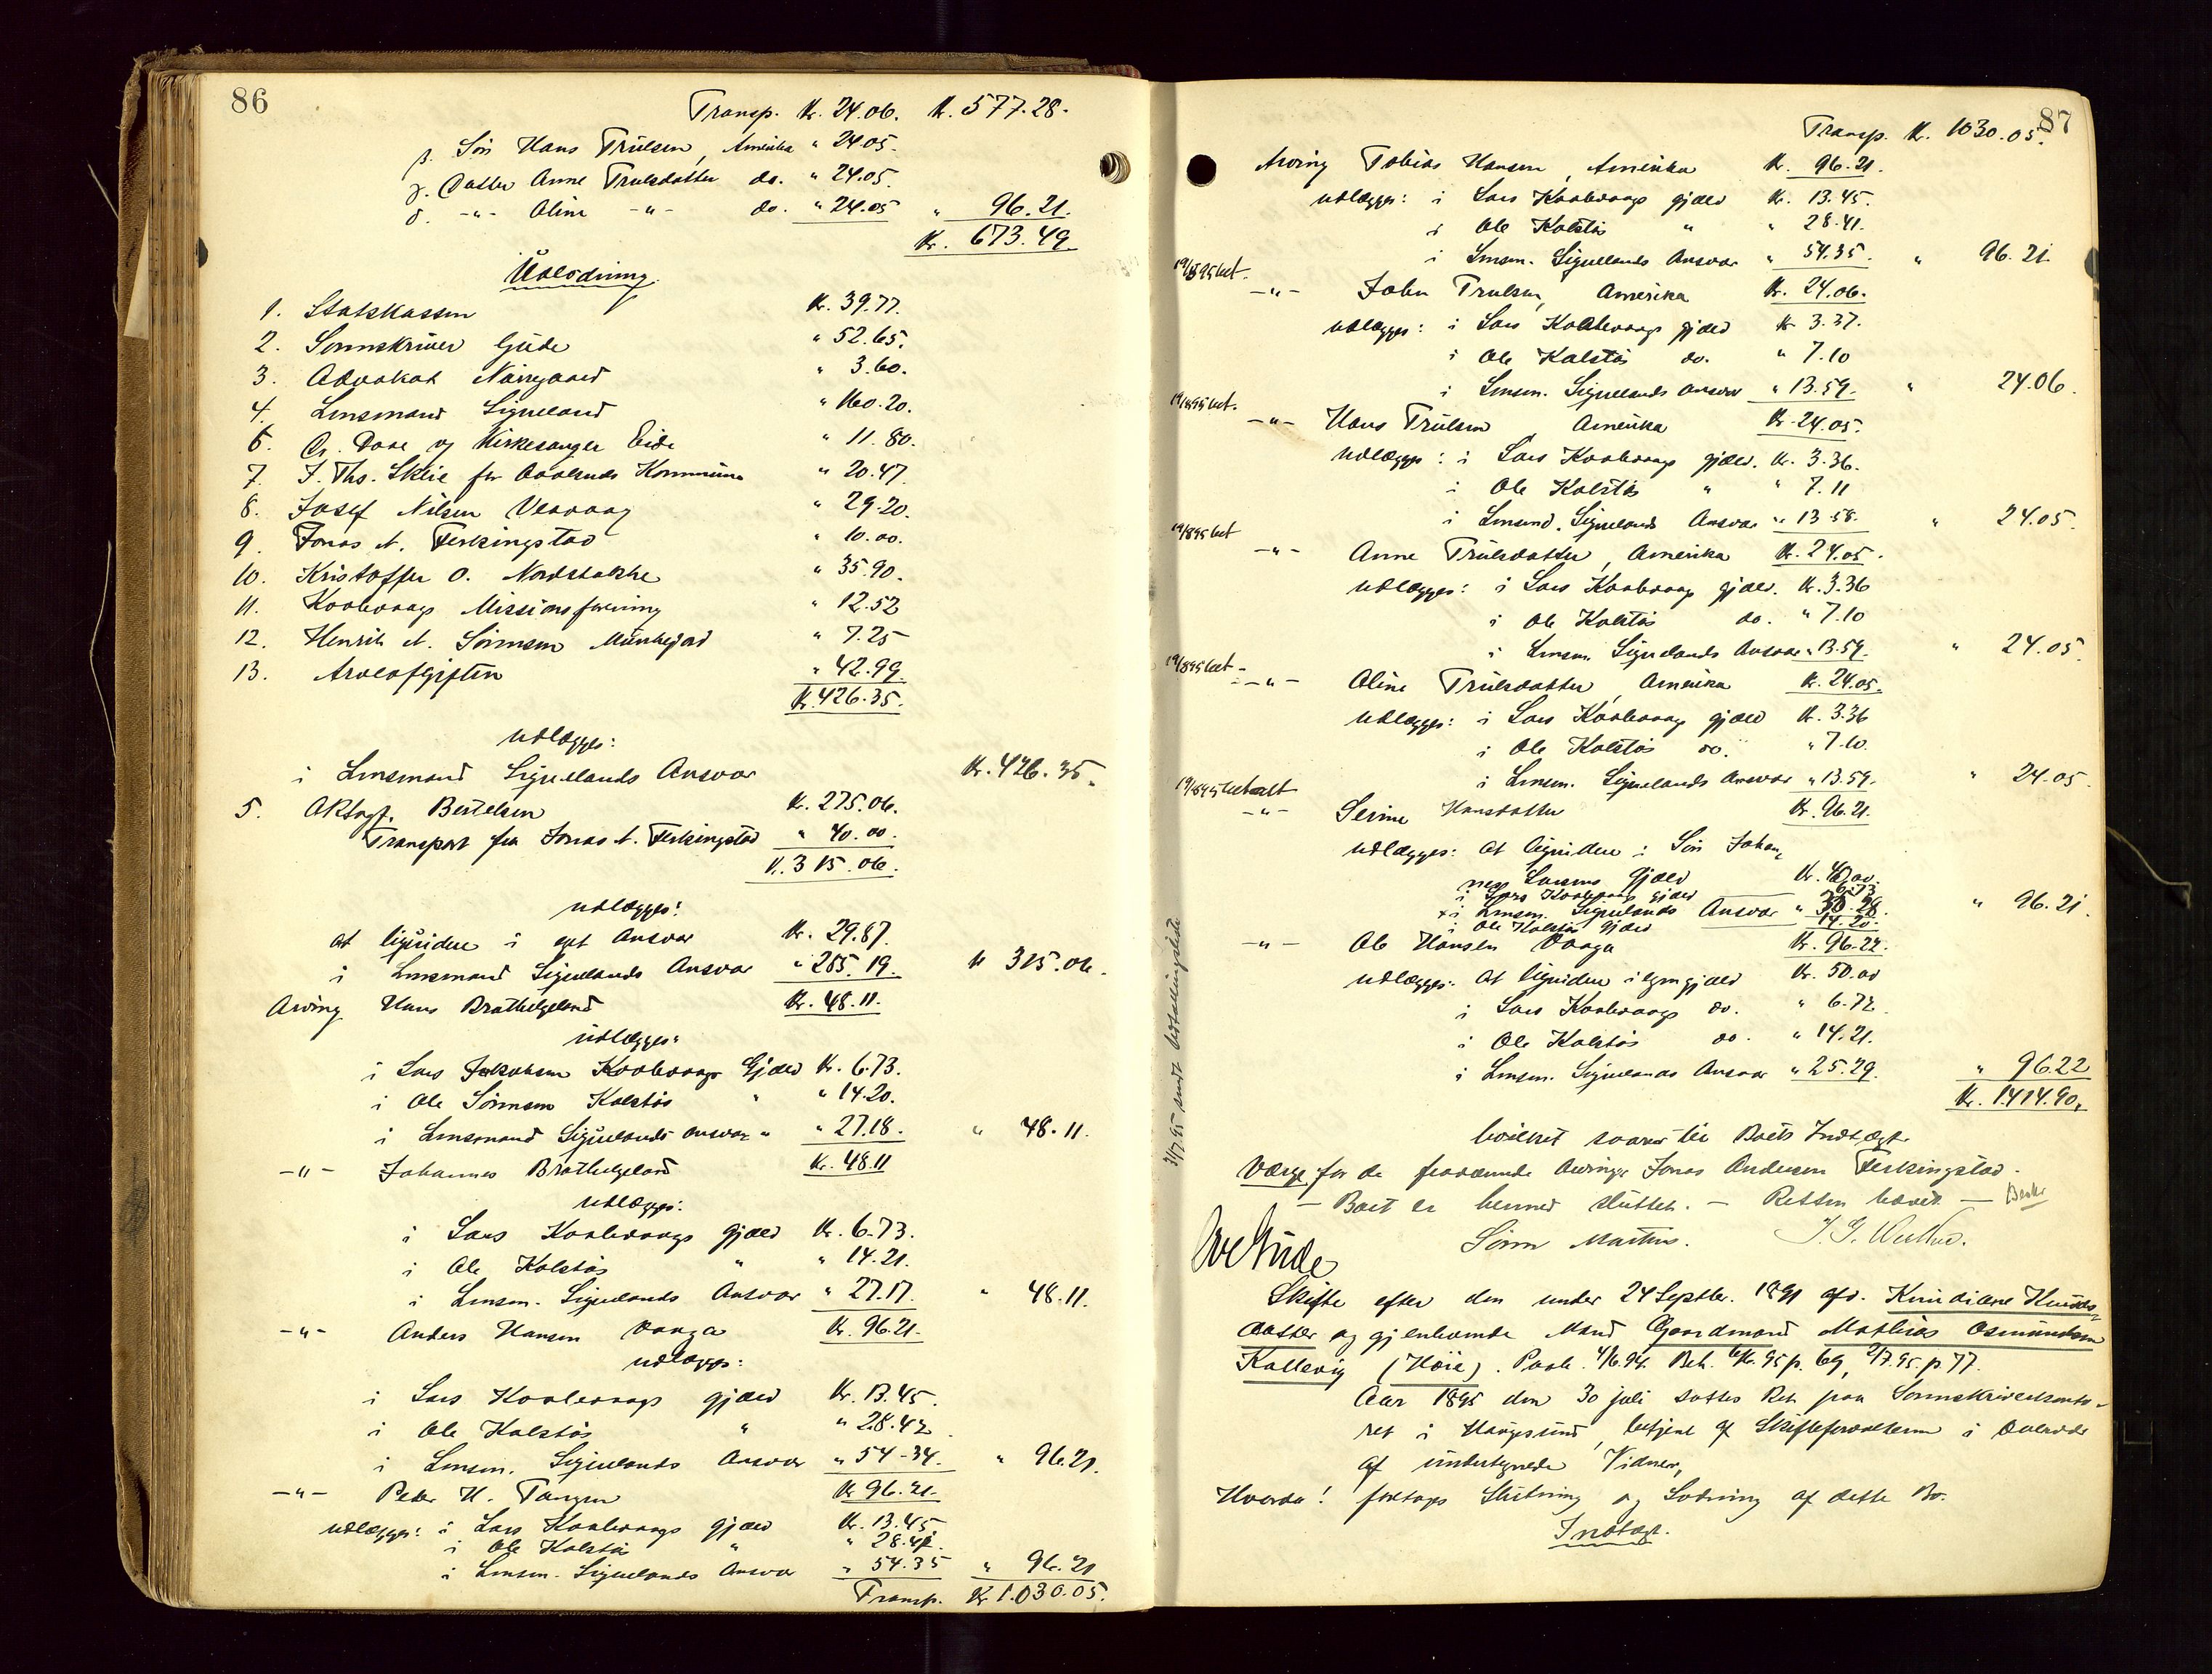 86
Transp. Kr. 24.06. K. 577.28.
β. Søn Hans Trulsen, Amerika " 24.05.
γ. Datter Anne Trulsdatter do. " 24.05.
δ. -"- Oline -"- do. " 24.05 " 96.21.
Kr. 673.49
Udlodning
1. Statskassen Kr. 39.77.
2. Sorenskriver Gude " 52.65.
3. Advokat Nørregaard " 3.60.
4. Lensmand Signeland " 160.20.
6. Chr. Dove og Kirkesanger Eide " 11.80.
7. J. Ths. Sklie for Avaldsnes Kommune " 20.47
8. Josef Nilsen Veavaag " 29.20.
9. Jonas A. Ferkingstad " 10.00.
10. Kristoffer O. Nordstakke " 35.90.
11. Kolevaags Missionsforening " 12.52
12. Henrik A. Sørensen Munkejord " 7.25
13. Arveafgiften " 42.99.
Kr. 426.35.
udlægges:
i Lensmand Signelands Ansvar Kr. 426.35.
5. O. Bertelsen Kr. 275.06.
Transport fra Jonas A. Ferkingstad " 40.00.
K. 315.06.
udlægges:
at liqvidere i eget Ansvar Kr. 29.87.
i Lensmand Signelands Ansvar " 285.19. " 315.06.
Arving Hans Brathelgeland Kr. 48.11.
udlægges:
i Lars Jakobsen Kolevaags Gjæld Kr. 6.73.
i Ole Sørensen Kolstøs " " 14.20.
i Lensmand Signelands Ansvar " " 27.18. " 48.11.
-"- Johannes Brathelgeland Kr. 48.11
udlægges:
i Lars Kolevaags gjæld Kr. 6.73.
i Ole Kolstøs " " 14.21.
i Lensm. Signelands Ansvar " 27.17. " 48.11.
-"- Anders Hansen Vaaga Kr. 96.21.
udlægges:
i Lars Kolevaags gjæld Kr. 13.45.
i Ole Kolstøs " " 28.42.
i Lensm. Signelands Ansvar " 54.34. " 96.21.
-"- Peder H. Tangen Kr. 96.21.
udlægges: i Lars Kolevaags gjæld Kr. 13.45
i Ole Kolstøs " " 28.41.
i Lensm. Signelands Ansvar " 54.35 " 96.21
Transp. Kr. 1.030.05.
87
Transp. Kr. 1030.05.
Arving Tobias Hansen, Amerika Kr. 96.21.
udlægges: i Lars Kolevaags gjæld Kr. 13.45.
i Ole Kolstøs " " 28.41.
i Lensm. Signelands Ansvar " 54.35. " 96.21.
19/8 95 bet.
-"- John Trulsen, Amerika Kr. 24.06.
udlægges: i Lars Kolevaags gjæld Kr. 3.37.
i Ole Kolstøs do. " 7.10
i Lensm. Signelands Ansvar " 13.59. " 24.06.
19/8 95 bet.
-"- Hans Trulsen Amerika Kr. 24.05.
udlægges: i Lars Kolevaags gjæld. Kr. 3.36.
i Ole Kolstøs " " 7.11
i Lensmd. Signelands Ansvar " 13.58. " 24.05.
19/8 95 bet
-"- Anne Trulsdatter, Amerika Kr. 24.05.
udlægges: i Lars Kolevaags gjæld. Kr. 3.36
i Ole Kolstøs do. " 7.10
i Lensm. Signelands Ansvar " 13.59. " 24.05.
19/8 95 bet.
-"- Oline Trulsdatter, Amerika Kr. 24.05.
udlægges: i Lars Kolevaags gjæld Kr. 3.36
i Ole Kolstøs do. " 7.10.
i Lensm. Signelands Ansvar " 13.59. " 24.05.
19/8 95 betalt
-"- Serine Hansdatter Kr. 96.21.
udlægges: at liqvidere i Søn Johan-
nes Larsens Gjæld Kr. 40.00.
i Lars Kolevaags gjæld 6.73
i Lensm. Signelands Ansvar " " 96.21.
i Ole Kolstøs gjæld 14.20.
-"- Ole Hansen Vaaga Kr. 96.22.
udlægges: at liqvidere i egen gjæld Kr. 50.00
i Lars Kolevaags do. " 6.72.
i Ole Kolstøs do. " 14.21.
i Lensm. Signelands Ansvar " 25.29. " 96.22
Kr. 1414.90.
hvilket svarer til Boets Indtægt.
Værge for de fraværende Arvinge Jonas Andersen Ferkingstad.
— Boet er hermed sluttet. — Retten hævet. —
Ove Gude Søren Martins.
31/7 95 sendt
Skifte efter den under 24 Septbr. 1891 afd. Knudiane Knuds-
datter og gjenlevende Mand Gaardmand Mathias Osmundsen
Kallevig (Høie). Paab. 4/6.94. Beh. 6/6.95 p. 69, 2/7.95. p. 77.
Aar 1895 den 30 juli sattes Ret paa Sorenskriverkonto-
ret i Haugesund, betjent af Skifteforvalteren i Overvær
af undertegnede Vidner,
Hvorda! foretoges Slutning og Lodning af dette Bo.
Indtægt.